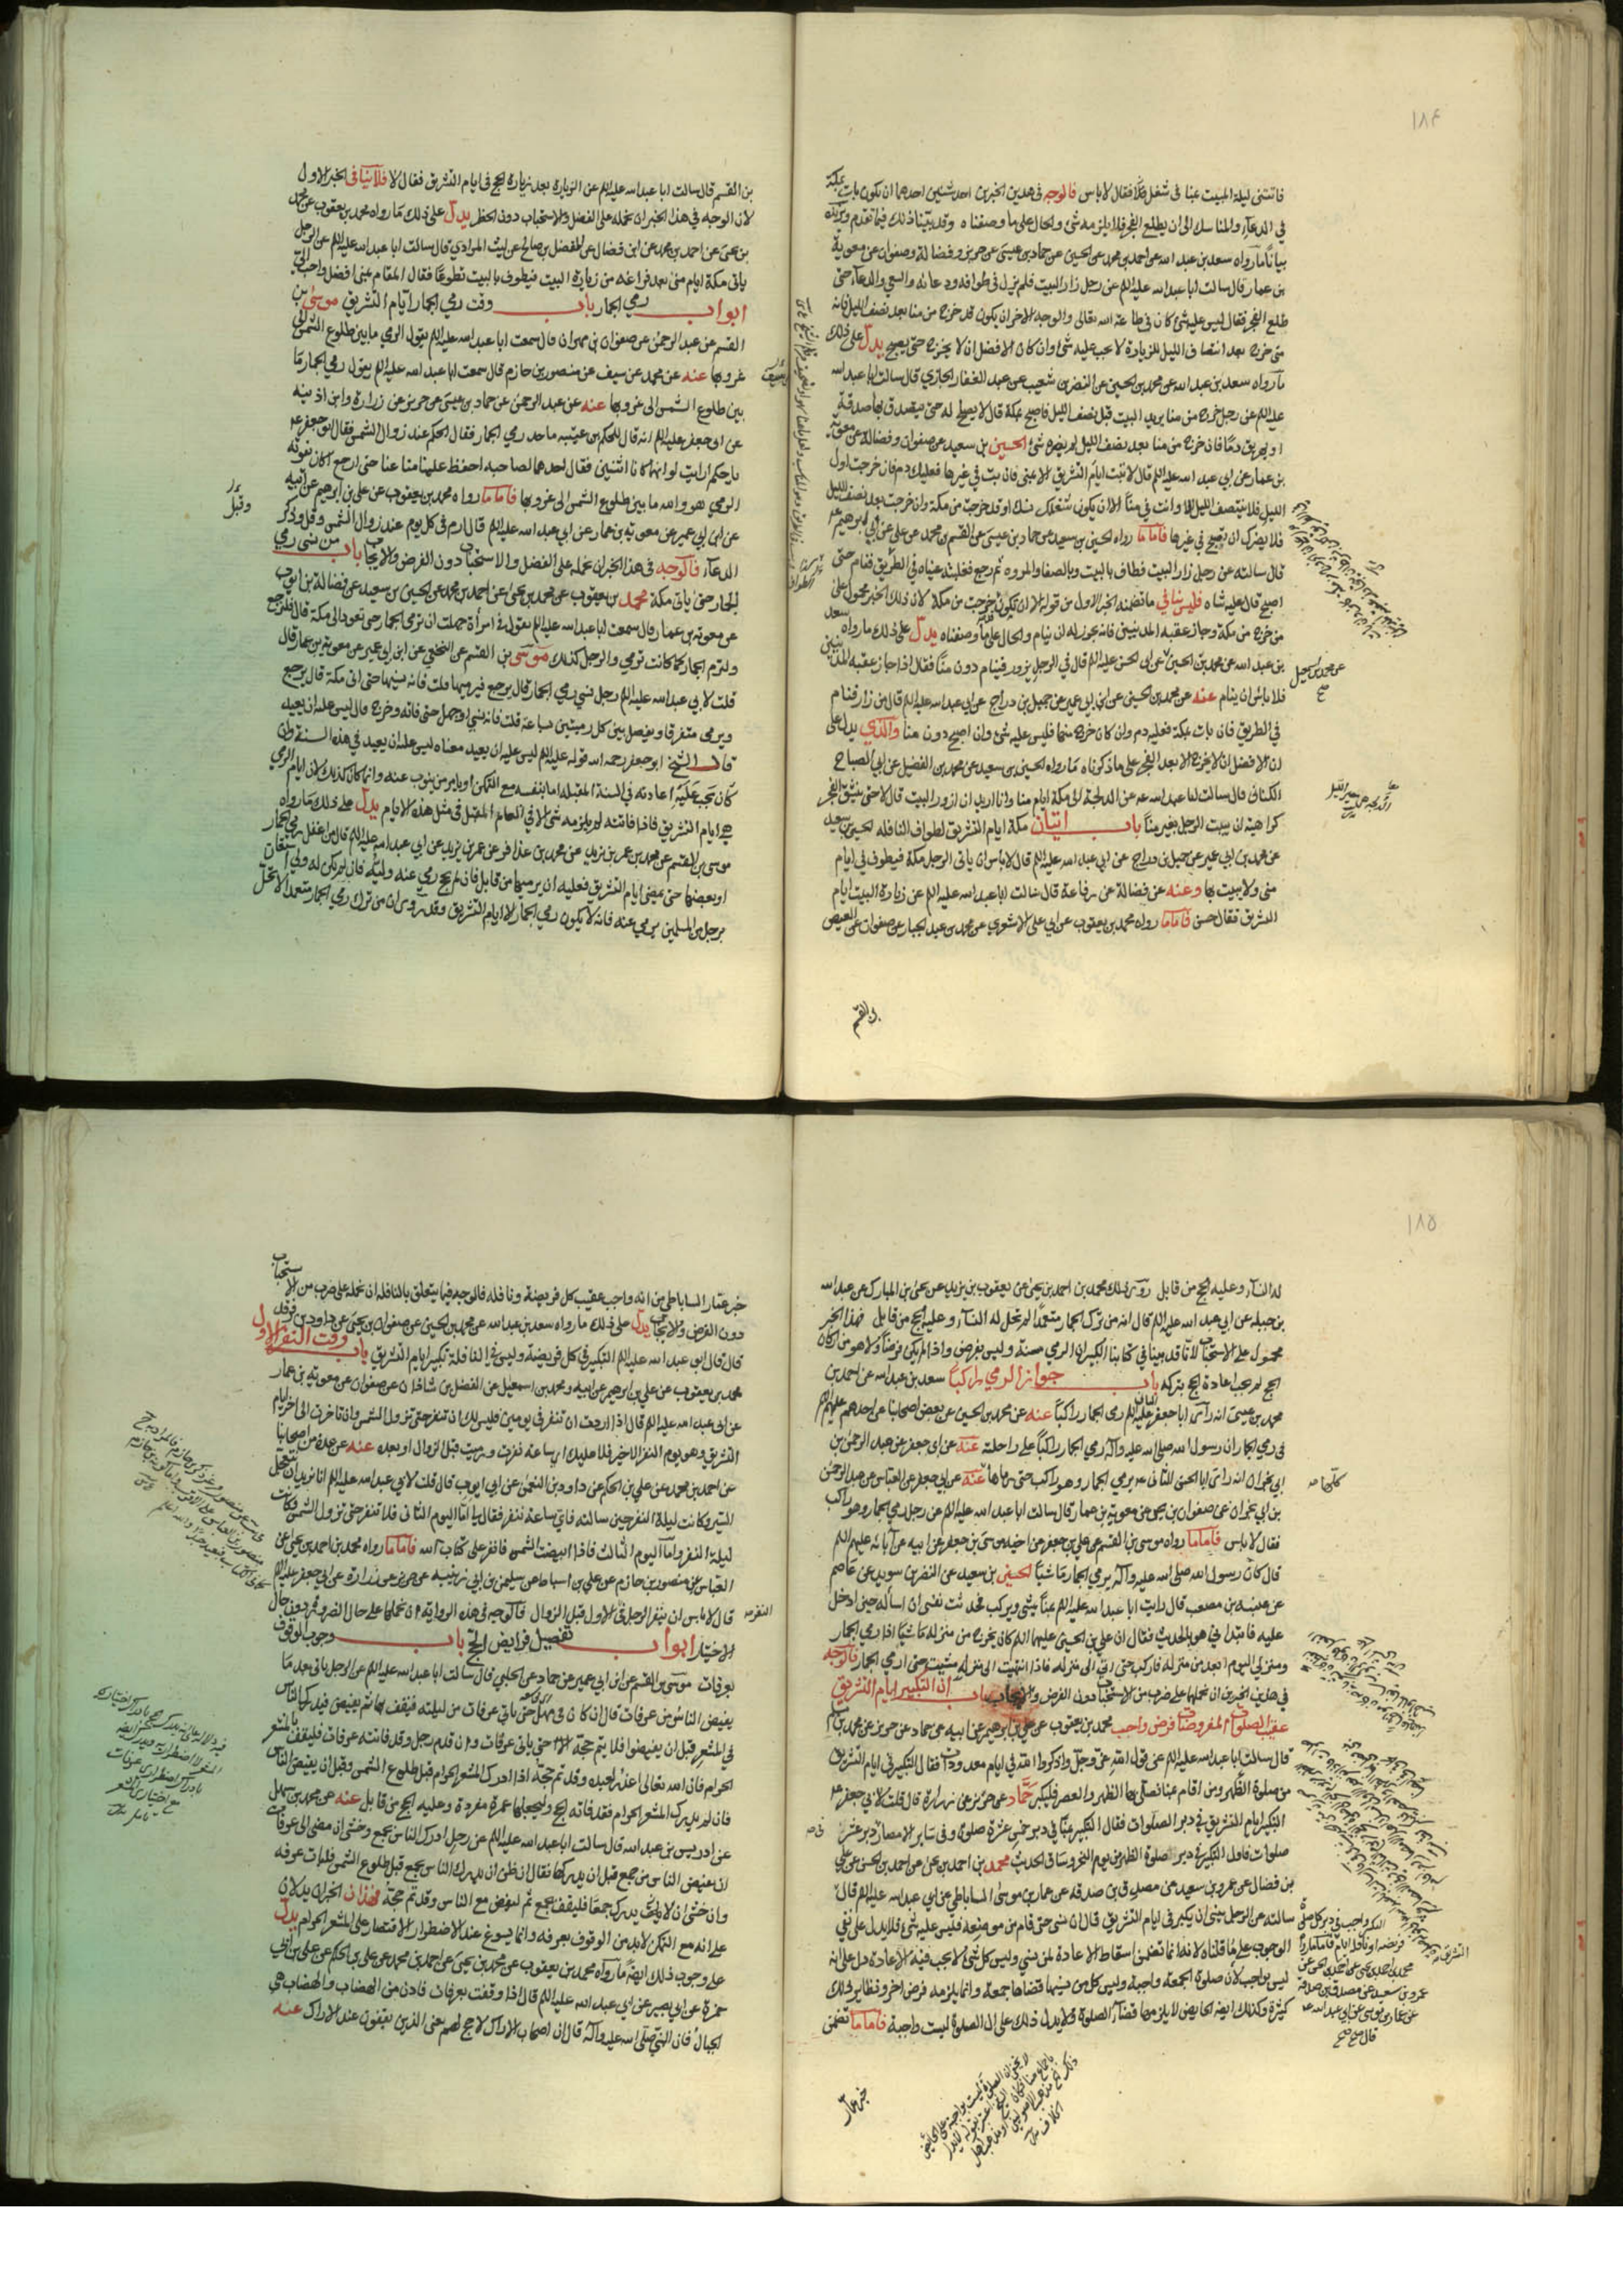 ١٨٤
فاتتنى ليلة المبيت عنا فى شغل فقال لا باس فالوجه فى هذين الخبرين احد شيئين احدهما ان يكون بات بمكة
فى الدعاء والمناسك الى ان يطلع الفجر فلا يلزمه شئ والحال على ما وصفناه وقد بينا ذلك فيما تقدم ويزيده
بيانا ما رواه سعد بن عبد الله عن احمد بن محمد عن الحسين عن حماد بن عيسى عن حريز وفضالة وصفوان عن معوية
بن عمار قال سالت ابا عبد الله عليه السلم عن رجل زار البيت فلم يزل فى طوافه ودعائه والسعى والدعاء حتى
طلع الفجر فقال ليس عليه شئ كان فى طاعة الله تعالى والوجه الاخر ان يكون قد خرج من منا بعد نصف الليل فانه
متى خرج بعد انتصاف الليل للزيارة لا يجب عليه شئ وان كان الافضل ان لا يخرج حتى يصبح يدل على ذلك
ما رواه سعد بن عبد الله عن محمد بن الحسين عن النضر بن شعيب عن عبد الغفار الجازى قال سالت ابا عبد الله
عليه السلم عن رجل خرج من منا يريد البيت قبل نصف الليل فاصبح بمكة قال لا يصلح له حتى يتصدق بها صدقة
او يهريق دما فان خرج من منا بعد نصف الليل لم يضره شئ الحسين بن سعيد عن صفوان وفضالة عن معوية
بن عمار عن ابى عبد الله عليه السلم قال لا تبت ايام التشريق الا بمنى فان بت فى غيرها فعليك دم فان خرجت اول
الليل فلا ينتصف الليل الا وانت فى منا الا ان يكون شغلك نسك او قد خرجت من مكة وان خرجت بعد نصف الليل
فلا يضرك ان تصبح فى غيرها فاما ما رواه الحسين بن سعيد عن حماد بن عيسى عن القسم بن محمد عن على عن ابى ابرهيم ع
قال سالته عن رجل زار البيت فطاف بالبيت وبالصفا والمروة ثم رجع فغلبته عيناه فى الطريق فنام حتى
اصبح قال عليه شاة فليس ينافى ما تضمنه الخبر الاول من قوله الا ان يكون خرجت من مكة لان ذلك الخبر محمول على
من خرج من مكة وجاز عقبة المدنيين فانه يجوز له ان ينام والحال على ما وصفناه يدل على ذلك ما رواه سعد
بن عبد الله عن محمد بن الحسين عن ابى الحسن عليه السلم قال فى الرجل يزور فينام دون منا فقال اذا جاز عقبة المدنيين
فلا باس ان ينام عنه عن محمد بن الحسين عن ابن ابى عمير عن جميل بن دراج عن ابى عبد الله عليه السلم قال من زار فنام
فى الطريق فان بات بمكة فعليه دم وان كان خرج منها فليس عليه شئ وان اصبح دون منا والذى يدل على
ان الافضل ان لا يخرج الا بعد الفجر على ما ذكرناه ما رواه الحسين بن سعيد عن محمد بن الفضيل عن ابى الصباح
الكنانى قال سالت ابا عبد الله عه عن الدلجة الى مكة ايام منا وانا اريد ان ازور البيت قال لا حتى ينشق الفجر
كراهية ان يبيت الرجل بغير منا باب اتيان مكة ايام التشريق لطواف النافلة الحسين بن سعيد
عن محمد بن ابى عمير عن جميل بن دراج عن ابى عبد الله عليه السلم قال لا باس ان ياتى الرجل مكة فيطوف فى ايام
منى ولا يبيت بها وعنه عن فضالة عن رفاعة قال سالت ابا عبد الله عليه السلم عن زيارة البيت ايام
التشريق فقال حسن فاما ما رواه محمد بن يعقوب عن ابى على الاشعرى عن محمد بن عبد الجبار عن صفوان عن العيص
بن القسم
عن محمد بن اسمعيل
صح
بن القسم قال سالت ابا عبد الله عليه السلم عن الزيارة بعد زيارة الحج فى ايام التشريق فقال لا فلا ينافى الخبر الاول
لان الوجه فى هذا الخبر ان نحمله على الفضل والاستحباب دون الحظر يدل على ذلك ما رواه محمد بن يعقوب عن محمد
بن يحيى عن احمد بن محمد عن ابن فضال عن المفضل بن صالح عن ليث المرادى قال سالت ابا عبد الله عليه السلم عن الرجل
ياتى مكة ايام منى بعد فراغه من زيارة البيت فيطوف بالبيت تطوعا فقال المقام بمنى افضل واحب الى
ابواب رمى الجمار باب وقت رمى الجمار ايام التشريق موسى بن
القسم عن عبد الرحمن عن صفوان بن مهران قال سمعت ابا عبد الله عليه السلم يقول الرمى ما بين طلوع الشمس الى
غروبها عنه عن محمد عن سيف عن منصور بن حازم قال سمعت ابا عبد الله عليه السلم يقول رمى الجمار ما
بين طلوع الشمس الى غروبها عنه عن عبد الرحمن عن حماد بن عيسى عن حريز عن زرارة وابن اذينه
عن ابى جعفر عليه السلم انه قال للحكم بن عيينه ما حد رمى الجمار فقال الحكم عند زوال الشمس فقال ابو جعفر عه
يا حكم ارايت لو انهما كانا اثنين فقال احدهما لصاحبه احفظ علينا متاعنا حتى ارجع اكان يفوته
الرمى هو والله ما بين طلوع الشمس الى غروبها فاما ما رواه محمد بن يعقوب عن على بن ابرهيم عن ابيه
عن ابن ابى عمير عن معوية بن عمار عن ابى عبد الله عليه السلم قال ارم فى كل يوم عند زوال الشمس وقل وذكر
الدعاء فالوجه فى هذا الخبر ان نحمله على الفضل والاستحباب دون الفرض والايجاب باب من نسى رمى
الجمار حتى ياتى مكة محمد بن يعقوب عن محمد بن يحيى عن احمد بن محمد عن الحسين بن سعيد عن فضالة بن ايوب
عن معوية بن عمار قال سمعت ابا عبد الله عليه السلم يقول فى امرأة جهلت ان ترمى الجمار حتى تعود الى مكة قال فلترجع
ولترم الجمار كما كانت ترمى والرجل كذلك موسى بن القسم عن النخعى عن ابن ابى عمير عن معوية بن عمار قال
قلت لابى عبد الله عليه السلم رجل نسى رمى الجمار قال يرجع فيرميها قلت فانه نسيها حتى اتى مكة قال يرجع
ويرمى متفرقا ويفصل بين كل رميتين ساعة قلت فانه نسى او جهل حتى فاته وخرج قال ليس عليه ان يعيد
قال الشيخ ابو جعفر رحمه الله قوله عليه السلم ليس عليه ان يعيد معناه ليس عليه ان يعيد فى هذه السنة وان
كان يجب عليه اعادته فى السنة المقبلة اما بنفسه مع التمكن او يامر من ينوب عنه وانما كان كذلك لان ايام الرمى
هى ايام التشريق فاذا فاتته لم يلزمه شئ الا فى العام المقبل فى مثل هذه الايام يدل على ذلك ما رواه
موسى بن القسم عن محمد بن عمر بن يزيد عن محمد بن عذافر عن عمر بن يزيد عن ابى عبد الله عليه السلم قال من اغفل رمى الجمار
او بعضها حتى يمضى ايام التشريق فعليه ان يرميها من قابل فان لم يحج رمى عنه وليه فان لم يكن له ولى استعان
برجل من المسلمين يرمى عنه فانه لا يكون رمى الجمار الا ايام التشريق وقد روى ان من ترك رمى الجمار متعمدا لا تحل
١٨٥
له النساء وعليه الحج من قابل روى ذلك محمد بن احمد بن يحيى عن يعقوب بن يزيد عن يحيى بن المبارك عن عبد الله
بن جبلة عن ابى عبد الله عليه السلم قال انه من ترك الجمار متعمدا لم تحل له النساء وعليه الحج من قابل فهذا الخبر
محمول على الاستحباب لانا قد بينا فى كتابنا الكبير ان الرمى سنة وليس بفرض واذا لم يكن فرضا ولا هو من اركان
الحج لم يجب اعادة الحج بتركه باب جواز الرمى راكبا سعد بن عبد الله عن احمد بن
محمد بن عيسى انه راى ابا جعفر الثانى عليه السلم رمى الجمار راكبا عنه عن محمد بن الحسين عن بعض اصحابنا عن احدهم عليهم السلم
فى رمى الجمار ان رسول الله صلى الله عليه وآله رمى الجمار راكبا على راحلته عنه عن ابى جعفر عن عبد الرحمن بن
ابى نجران انه راى ابا الحسن الثانى عه يرمى الجمار وهو راكب حتى رماها عنه عن ابى جعفر عن العباس عن عبد الرحمن
بن ابى نجران عن صفوان بن يحيى عن معوية بن عمار قال سالت ابا عبد الله عليه السلم عن رجل رمى الجمار وهو راكب
فقال لا باس فاما ما رواه موسى بن القسم عن على بن جعفر عن اخيه موسى بن جعفر عن ابيه عن آبائه عليهم السلم
قال كان رسول الله صلى الله عليه وآله يرمى الجمار ماشيا الحسين بن سعيد عن النضر بن سويد عن عاصم
عن عنبسة بن مصعب قال رايت ابا عبد الله عليه السلم بمنا يمشى ويركب فحدثت نفسى ان اسأله حين ادخل
عليه فابتدانى هو بالحديث فقال ان على بن الحسين عليهما السلم كان يخرج من منزله ماشيا اذا رمى الجمار
ومنزلى اليوم ابعد من منزله فاركب حتى اتى الى منزله فاذا انتهيت الى منزله مشيت حتى ارمى الجمار فالوجه
فى هذين الخبرين ان نحملهما على ضرب من الاستحباب دون الفرض والايجاب باب ان التكبير ايام التشريق
عقيب الصلوات المفروضات فرض واجب محمد بن يعقوب عن على بن ابرهيم عن ابيه عن حماد عن حريز عن محمد بن مسلم
قال سالت ابا عبد الله عليه السلم عن قول الله عز وجل واذكروا الله فى ايام معدودات فقال التكبير فى ايام التشريق
من صلوة الظهر ومن اقام بمنا فصلى بها الظهر والعصر فليكبر حماد عن حريز عن زرارة قال قلت لابى جعفر عه
التكبير ايام التشريق فى دبر الصلوات فقال التكبير بمنا فى دبر خمس عشرة صلوة وفى سائر الامصار دبر عشر
صلوات فاول التكبير فى دبر صلوة الظهر من يوم النحر وساق الحديث محمد بن احمد بن يحيى عن احمد بن الحسن عن على
بن فضال عن عمرو بن سعيد عن مصدق بن صدقه عن عمار بن موسى الساباطى عن ابى عبد الله عليه السلم قال
سالته عن الرجل ينسى ان يكبر فى ايام التشريق قال ان نسى حتى قام من موضعه فليس عليه شئ فلا يدل على نفى
الوجوب على ما قلناه لانه انما تضمن اسقاط الاعادة لمن نسى وليس كل شئ لا يجب فيه الاعادة دل على انه
ليس بواجب لان صلوة الجمعة واجبة وليس كل من نسيها قضاها جمعة وانما يلزمه فرض اخر ونظاير ذلك
كثيرة وكذلك ايضا الحايض لا يلزمها قضاء الصلوة ولا يدل ذلك على ان الصلوة ليست واجبة فاما ما تضمن
خبر عمار
كلها صه
التكبير واجب فى دبر كل صلوة
فريضه او نافلة ايام التشريق فاما ما رواه
محمد بن احمد بن يحيى عن احمد بن يحيى عن
عمرو بن سعيد عن مصدق بن صدقة
عن عمار بن موسى عن ابى عبد الله عه
قال صح صح
خبر عمار الساباطى من انه واجب عقيب كل فريضة ونافلة فالوجه فيما يتعلق بالنافلة ان نحمله على ضرب من الاستحباب
دون الفرض والايجاب يدل على ذلك ما رواه سعد بن عبد الله عن محمد بن الحسين عن صفوان بن يحيى عن داود بن فرقد
قال قال ابو عبد الله عليه السلم التكبير فى كل فريضة وليس فى النافلة تكبير ايام التشريق باب وقت النفر الاول
محمد بن يعقوب عن على بن ابرهيم عن ابيه ومحمد بن اسمعيل عن الفضل بن شاذان عن صفوان عن معوية بن عمار
عن ابى عبد الله عليه السلم قال اذا اردت ان تنفر فى يومين فليس لك ان تنفر حتى تزول الشمس وان تاخرت الى اخر ايام
التشريق وهو يوم النفر الاخير فلا عليك اى ساعة نفرت ورميت قبل الزوال او بعده عنه عن عدة من اصحابنا
عن احمد بن محمد عن على بن الحكم عن داود بن النعمن عن ابى ايوب قال قلت لابى عبد الله عليه السلم انا نريد ان نتعجل
السير وكانت ليلة النفر حين سالته فاى ساعة ننفر فقال لى اما اليوم الثانى فلا تنفر حتى تزول الشمس وكانت
ليلة النفر واما اليوم الثالث فاذا ابيضت الشمس فانفر على كتاب الله فاما ما رواه محمد بن احمد بن يحيى عن
العباس عن منصور بن حازم عن على بن اسباط عن سليمن بن ابى زينبه عن حريز عن زرارة عن ابى جعفر عليه السلم
قال لا باس ان ينفر الرجل فى الاول قبل الزوال فالوجه فى هذه الرواية ان نحملها على حال الضرورة دون حال
الاختيار ابواب تفصيل فرايض الحج باب وجوب الوقوف
بعرفات موسى بن القسم عن ابن ابى عمير عن حماد عن الحلبى قال سالت ابا عبد الله عليه السلم عن الرجل ياتى بعد ما
يفيض الناس من عرفات قال ان كان فى مهل حتى ياتى عرفات من ليلته فيقف بها ثم يفيض فيدرك الناس
فى المشعر قبل ان يفيضوا فلا يتم حجه الا حتى ياتى عرفات وان قدم رجل وقد فاتته عرفات فليقف بالمشعر
الحرام فان الله تعالى اعذر لعبده وقد تم حجه اذا ادرك المشعر الحرام قبل طلوع الشمس وقبل ان يفيض الناس
فان لم يدرك المشعر الحرام فقد فاته الحج وليجعلها عمرة مفردة وعليه الحج من قابل عنه عن محمد بن سهل
عن ادريس بن عبد الله قال سالت ابا عبد الله عليه السلم عن رجل ادرك الناس بجمع وخشى ان مضى الى عرفات
ان يفيض الناس من جمع قبل ان يدركها فقال ان ظن ان يدرك الناس بجمع قبل طلوع الشمس فليات عرفه
وان خشى ان لا يدرك جمعا فليقف بجمع ثم ليفض مع الناس وقد تم حجه فهذان الخبران يدلان
على انه مع التمكن لا بد من الوقوف بعرفه وانما يسوغ عند الاضطرار الاقتصار على المشعر الحرام يدل
على وجوب ذلك ايضا ما رواه محمد بن يعقوب عن محمد بن يحيى عن احمد بن محمد عن على بن الحكم عن على بن ابى
حمزة عن ابى بصير عن ابى عبد الله عليه السلم قال اذا وقفت بعرفات فادن من الهضاب والهضاب هى
الجبال فان النبى صلى الله عليه وآله قال ان اصحاب الاراك لا حج لهم يعنى الذين يقفون عند الاراك عنه